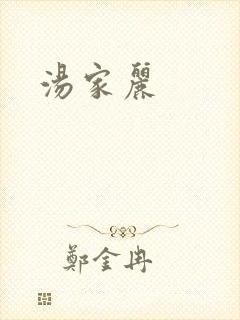 湯家麗
鄭金冉